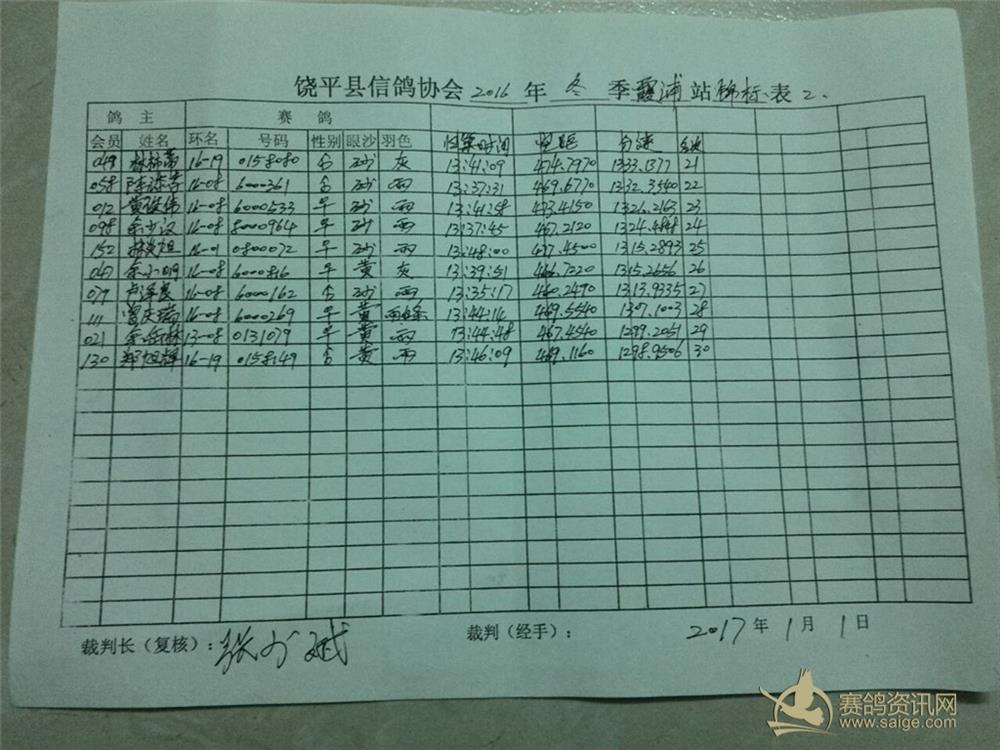 饶平县信鸽协会 2016 年 冬 季 霞浦 站 锦标 表 2.
鸽 主 赛 鸽
会员 姓名 环名 号码 性别 眼沙 羽色 归巢时间 空距 分速 名次
049 16-19 0158080 沙 灰 13:41:09 474.7970 1333.1377 21
058 16-08 600361 沙 雨 13:37:31 469.6770 1332.3540 22
012 黄俊伟 16-08 6000533 沙 雨 13:41:58 473.4150 1326.2163 23
098 余少汉 16-08 8000964 沙 雨 13:37:45 467.2120 24
152 16-01 0800072 沙 雨 13:48:00 477.4500 1315.2893 25
047 余小明 16-08 6000816 黄 灰 13:39:51 466.7220 1315.2656 26
079 16-08 6000162 沙 雨 13:35:17 460.2490 1313.9335 27
111 曾庆瑞 16-08 6000269 黄 13:44:14 469.5540 1307.1003 28
021 13-08 0131079 黄 雨 13:44:48 467.4540 1299.2051 29
130 郑旭辉 16-19 0158149 黄 雨 13:46:09 469.1160 1298.9506 30
裁判长（复核）： 裁判（经手）： 2017 年 1 月 1 日
赛鸽资讯网
www.saige.com